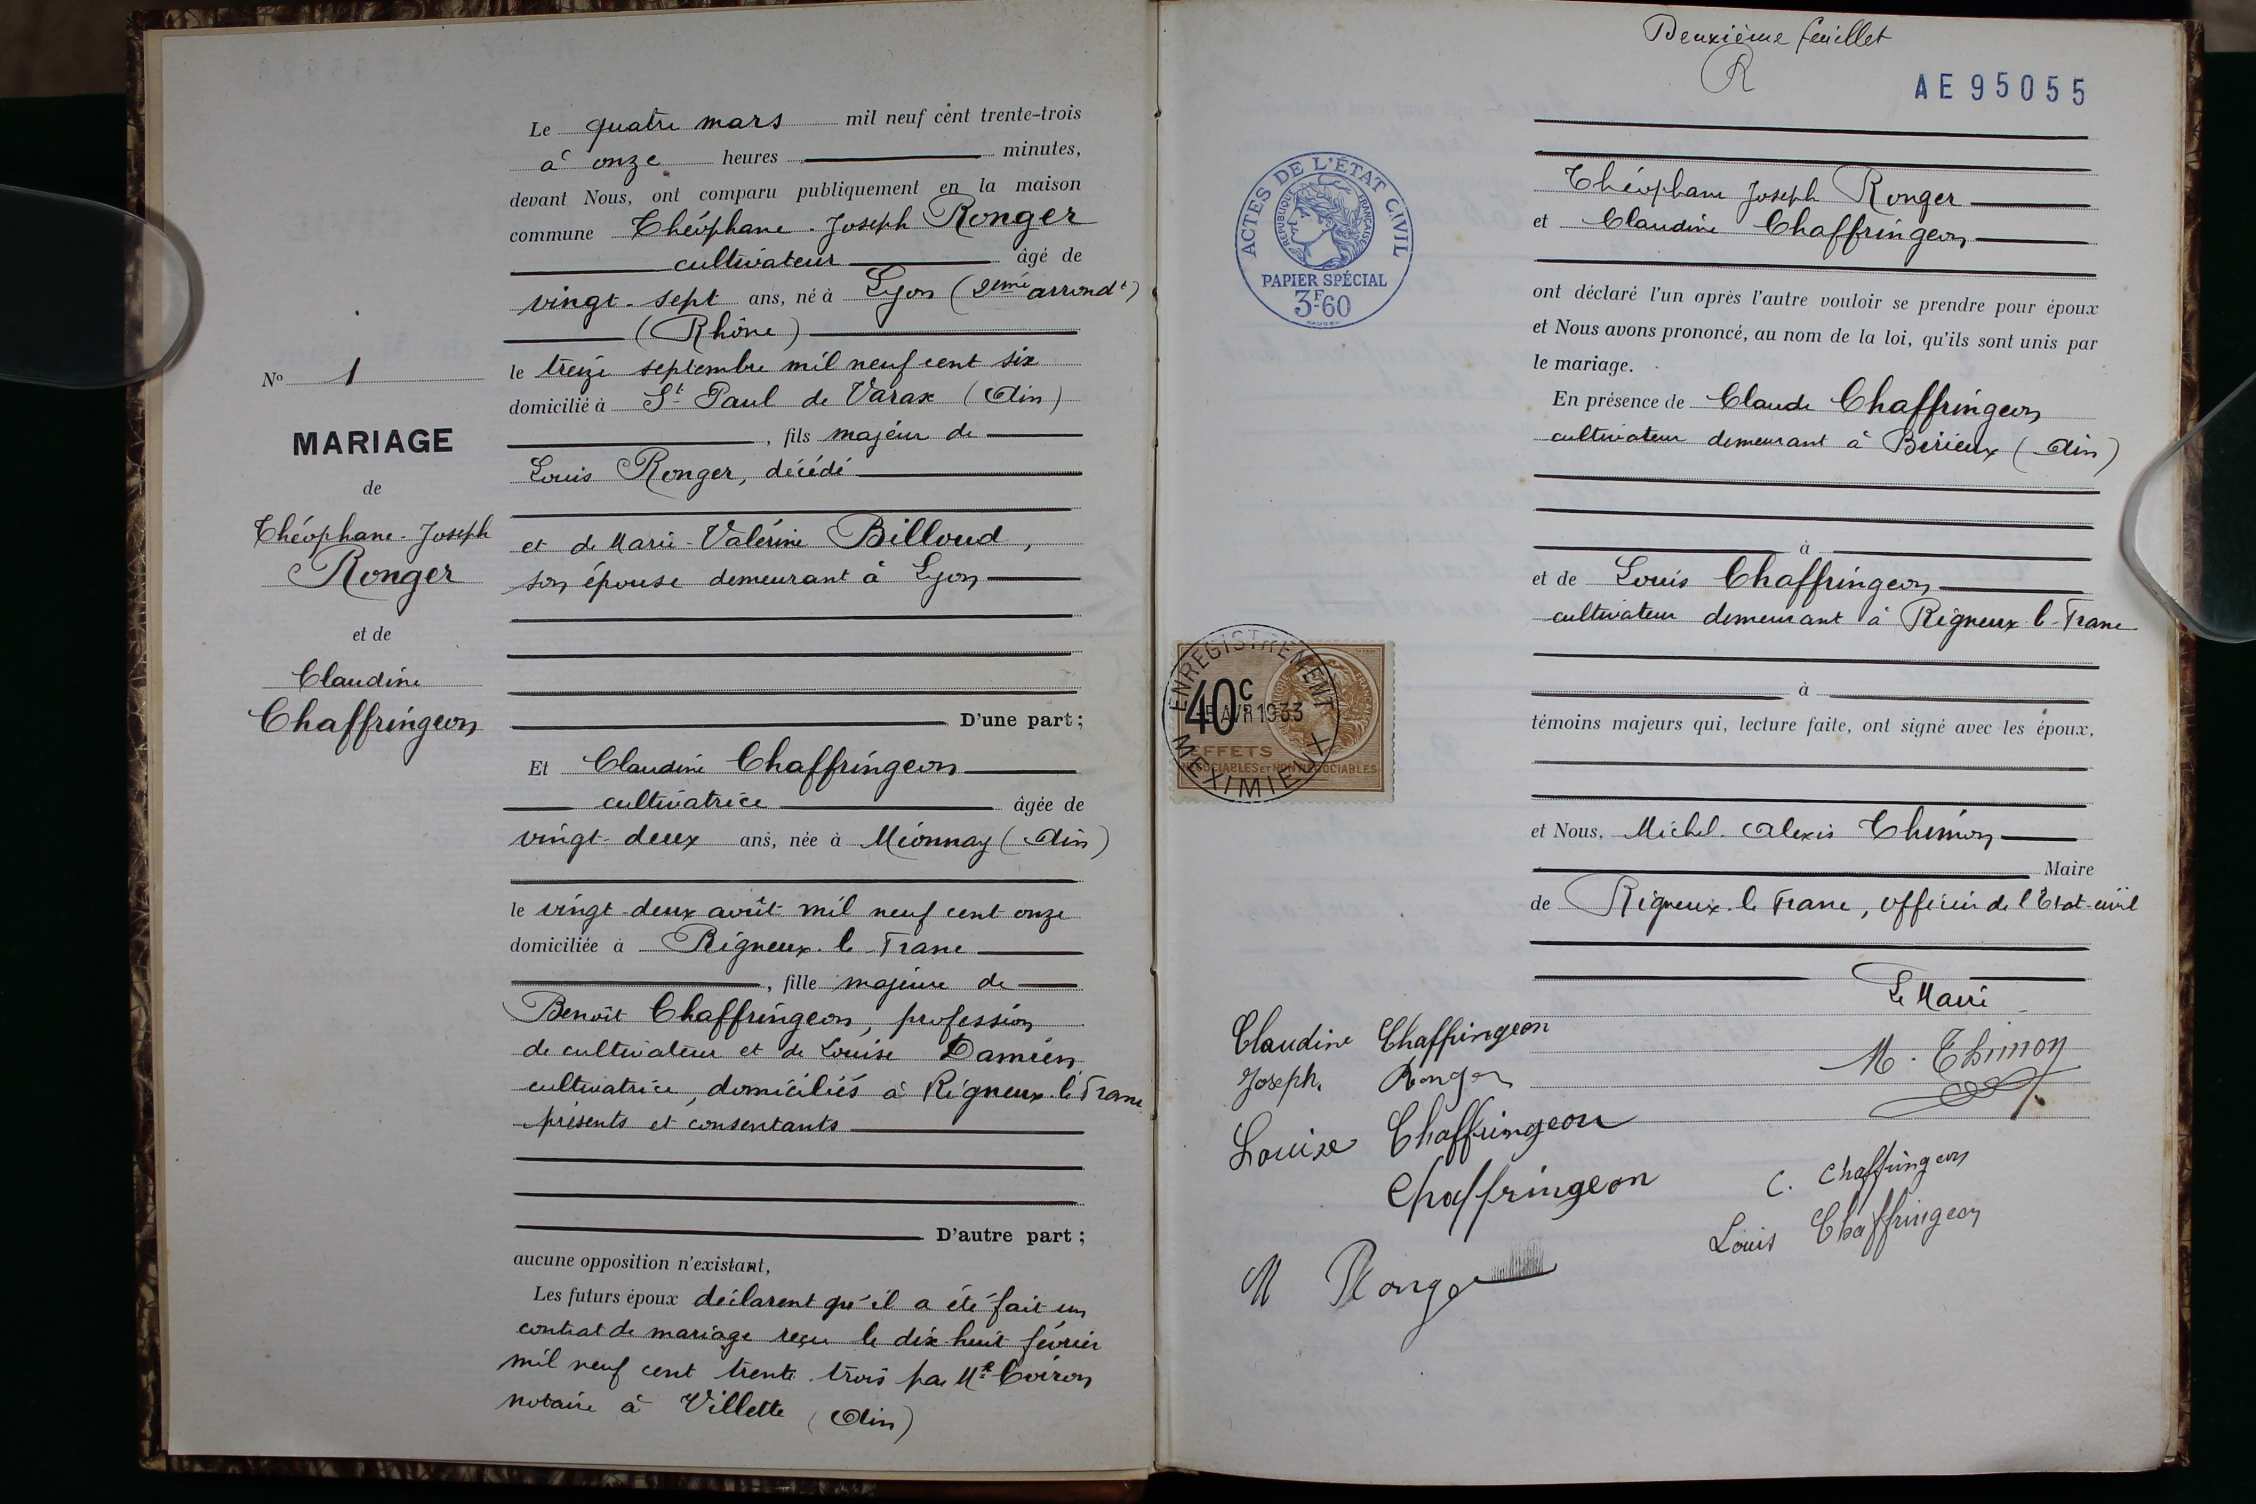 Le quatre mars mil neuf cent trente-trois
à onze heures minutes,
devant Nous, ont comparu publiquement en la maison
commune Théophane-Joseph Ronger
cultivateur âgé de
vingt-sept ans, né à Lyon (2ème arrondt)
(Rhône)
le treize septembre mil neuf cent six
domicilié à St Paul de Varax (Ain)
, fils majeur de
Louis Ronger, décédé
et de Marie-Valérine Billoud,
son épouse demeurant à Lyon
D'une part;
Et Claudine Chaffringeon
cultivatrice âgée de
vingt-deux ans, née à Mionnay (Ain)
le vingt-deux août mil neuf cent onze
domiciliée à Rigneux-le-Franc
, fille majeure de
Benoît Chaffringeon, profession
de cultivateur et de Louise Damien,
cultivatrice, domiciliés à Rigneux-le-Franc
présents et consentants
D'autre part;
aucune opposition n'existant,
Les futurs époux déclarent qu'il a été fait un
contrat de mariage reçu le dix huit février
mil neuf cent trente-trois par Me Coiron
notaire à Villette (Ain)
No 1
MARIAGE
de
Théophane-Joseph
Ronger
et de
Claudine
Chaffringeon
Deuxième feuillet
R
AE95055
ACTES DE L'ÉTAT CIVIL
RÉPUBLIQUE FRANÇAISE
PAPIER SPÉCIAL
3F60
Théophane Joseph Ronger
et Claudine Chaffringeon
ont déclaré l'un après l'autre vouloir se prendre pour époux
et Nous avons prononcé, au nom de la loi, qu'ils sont unis par
le mariage.
En présence de Claude Chaffringeon
cultivateur demeurant à Birieux (Ain)
à
et de Louis Chaffringeon
cultivateur demeurant à Rigneux-le-Franc
à
témoins majeurs qui, lecture faite, ont signé avec les époux,
et Nous, Michel-Alexis Thimon
Maire
de Rigneux-le-Franc, officier de l'Etat-civil
Le Maire
M. Thimon
ENREGISTREMENT
40c
AVR 1933
EFFETS
NÉGOCIABLES ET NON NÉGOCIABLES
MEXIMIEUX
Claudine Chaffringeon
Joseph. Ronger
Louise Chaffringeon
Chaffringeon
C. Chaffringeon
Louis Chaffringeon
M Ronger